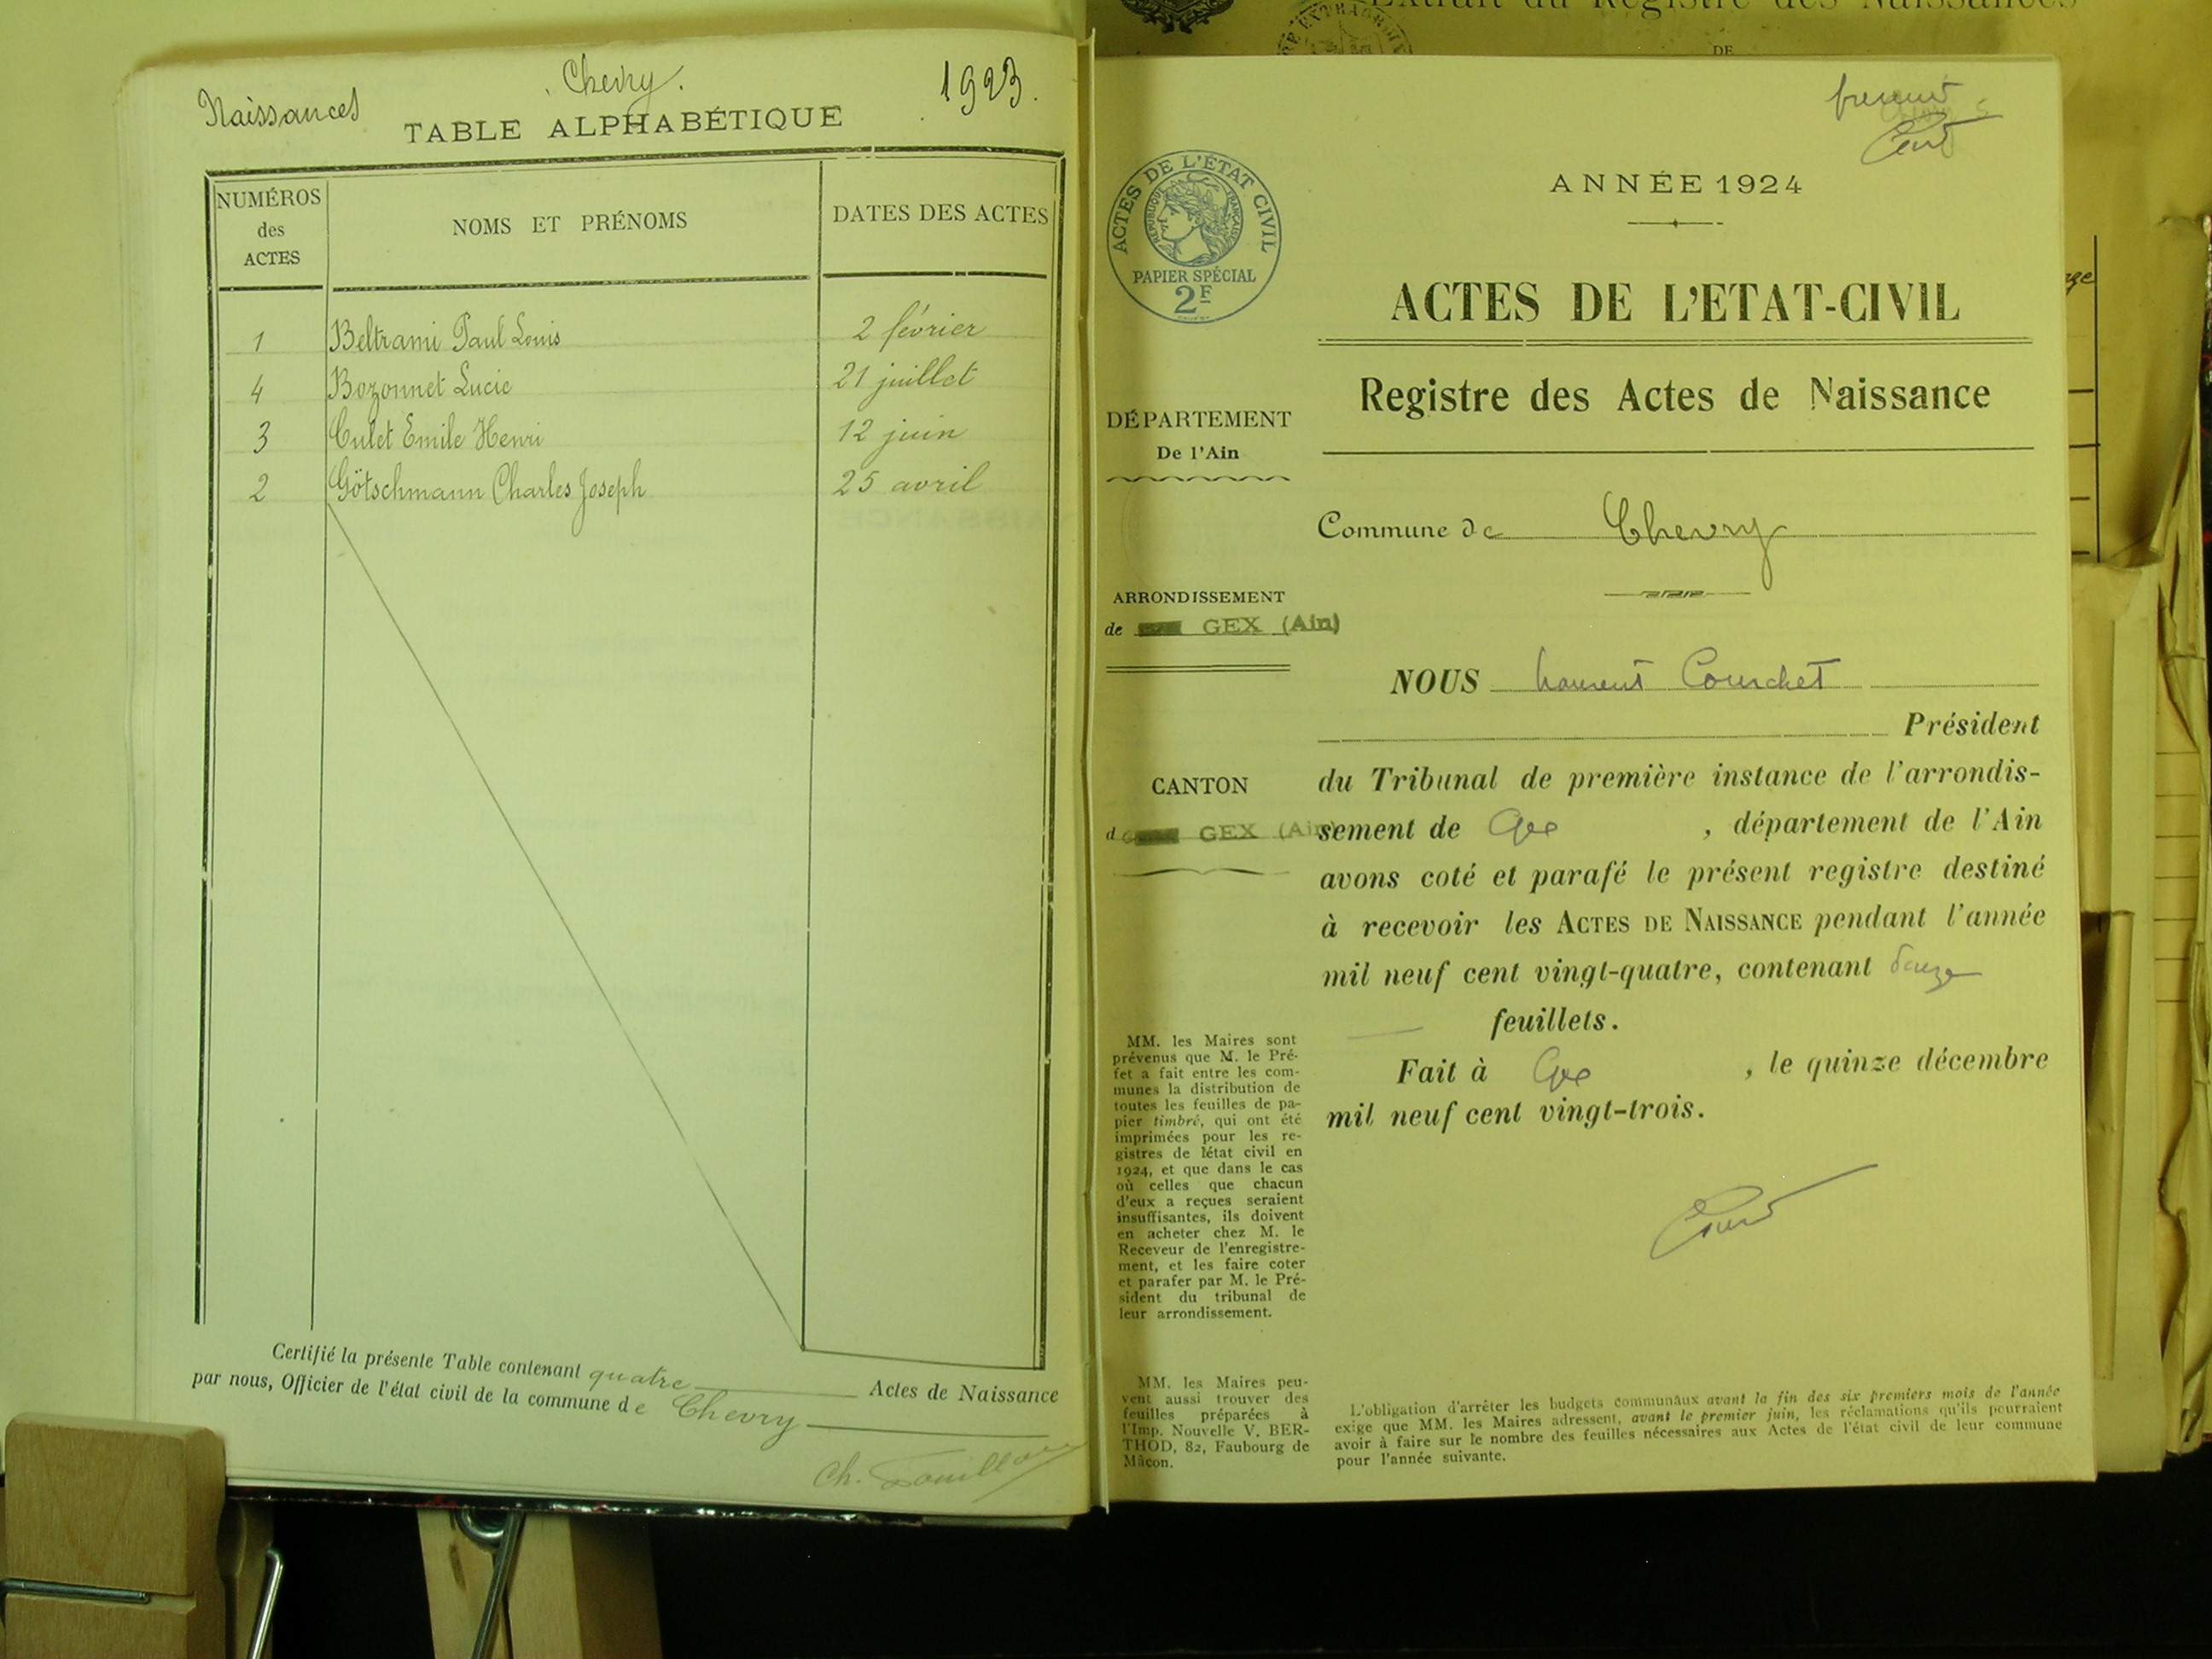 Naissances
Chevry.
1923.
TABLE ALPHABÉTIQUE
NUMÉROS
des
ACTES
NOMS ET PRÉNOMS
DATES DES ACTES
1 Beltrami Paul Louis 2 février
4 Bozonnet Lucie 21 juillet
3 Culet Emile Henri 12 juin
2 Götschmann Charles Joseph 25 avril
Certifié la présente Table contenant quatre Actes de Naissance
par nous, Officier de l'état civil de la commune de Chevry
Ch.
Extrait du Registre des Naissances
DE
premier
ACTES DE L'ÉTAT CIVIL
RÉPUBLIQUE FRANÇAISE
PAPIER SPÉCIAL
2F
ANNÉE 1924
ACTES DE L'ETAT-CIVIL
Registre des Actes de Naissance
DÉPARTEMENT
De l'Ain
Commune de Chevry
ARRONDISSEMENT
de GEX (Ain)
CANTON
d GEX (Ain)
NOUS Laurent Courchet
Président
du Tribunal de première instance de l'arrondis-
sement de Gex , département de l'Ain
avons coté et parafé le présent registre destiné
à recevoir les ACTES DE NAISSANCE pendant l'année
mil neuf cent vingt-quatre, contenant douze
feuillets.
Fait à Gex , le quinze décembre
mil neuf cent vingt-trois.
MM. les Maires sont
prévenus que M. le Pré-
fet a fait entre les com-
munes la distribution de
toutes les feuilles de pa-
pier timbré, qui ont été
imprimées pour les re-
gistres de létat civil en
1924, et que dans le cas
où celles que chacun
d'eux a reçues seraient
insuffisantes, ils doivent
en acheter chez M. le
Receveur de l'enregistre-
ment, et les faire coter
et parafer par M. le Pré-
sident du tribunal de
leur arrondissement.
MM. les Maires peu-
vent aussi trouver des
feuilles préparées à
l'Imp. Nouvelle V. BER-
THOD, 82, Faubourg de
Mâcon.
L'obligation d'arrêter les budgets communaux avant la fin des six premiers mois de l'année
exige que MM. les Maires adressent, avant le premier juin, les réclamations qu'ils pourraient
avoir à faire sur le nombre des feuilles nécessaires aux Actes de l'état civil de leur commune
pour l'année suivante.